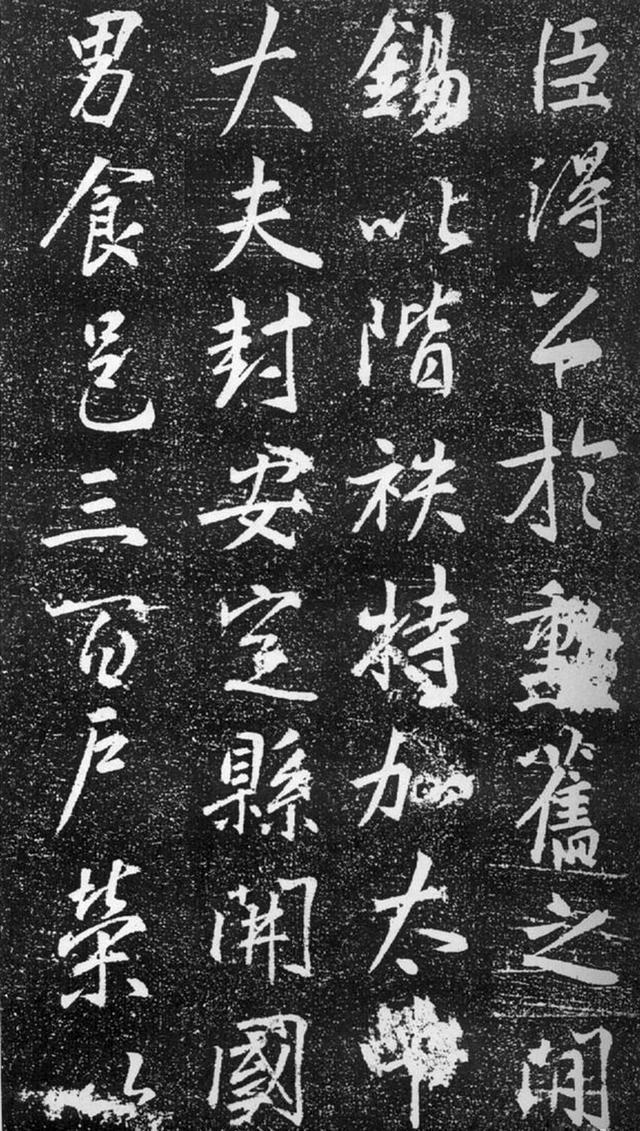 臣得公於勳舊之閒
錫以階秩特加太中
大夫封安定縣開國
男食邑三百戶榮以